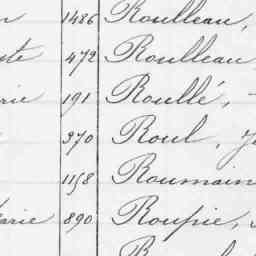 1486 Roulleau,
472 Roulleau
rie 191 Roullé, -
970 Roul,
1158 Roumain
arie 890 Roupie,